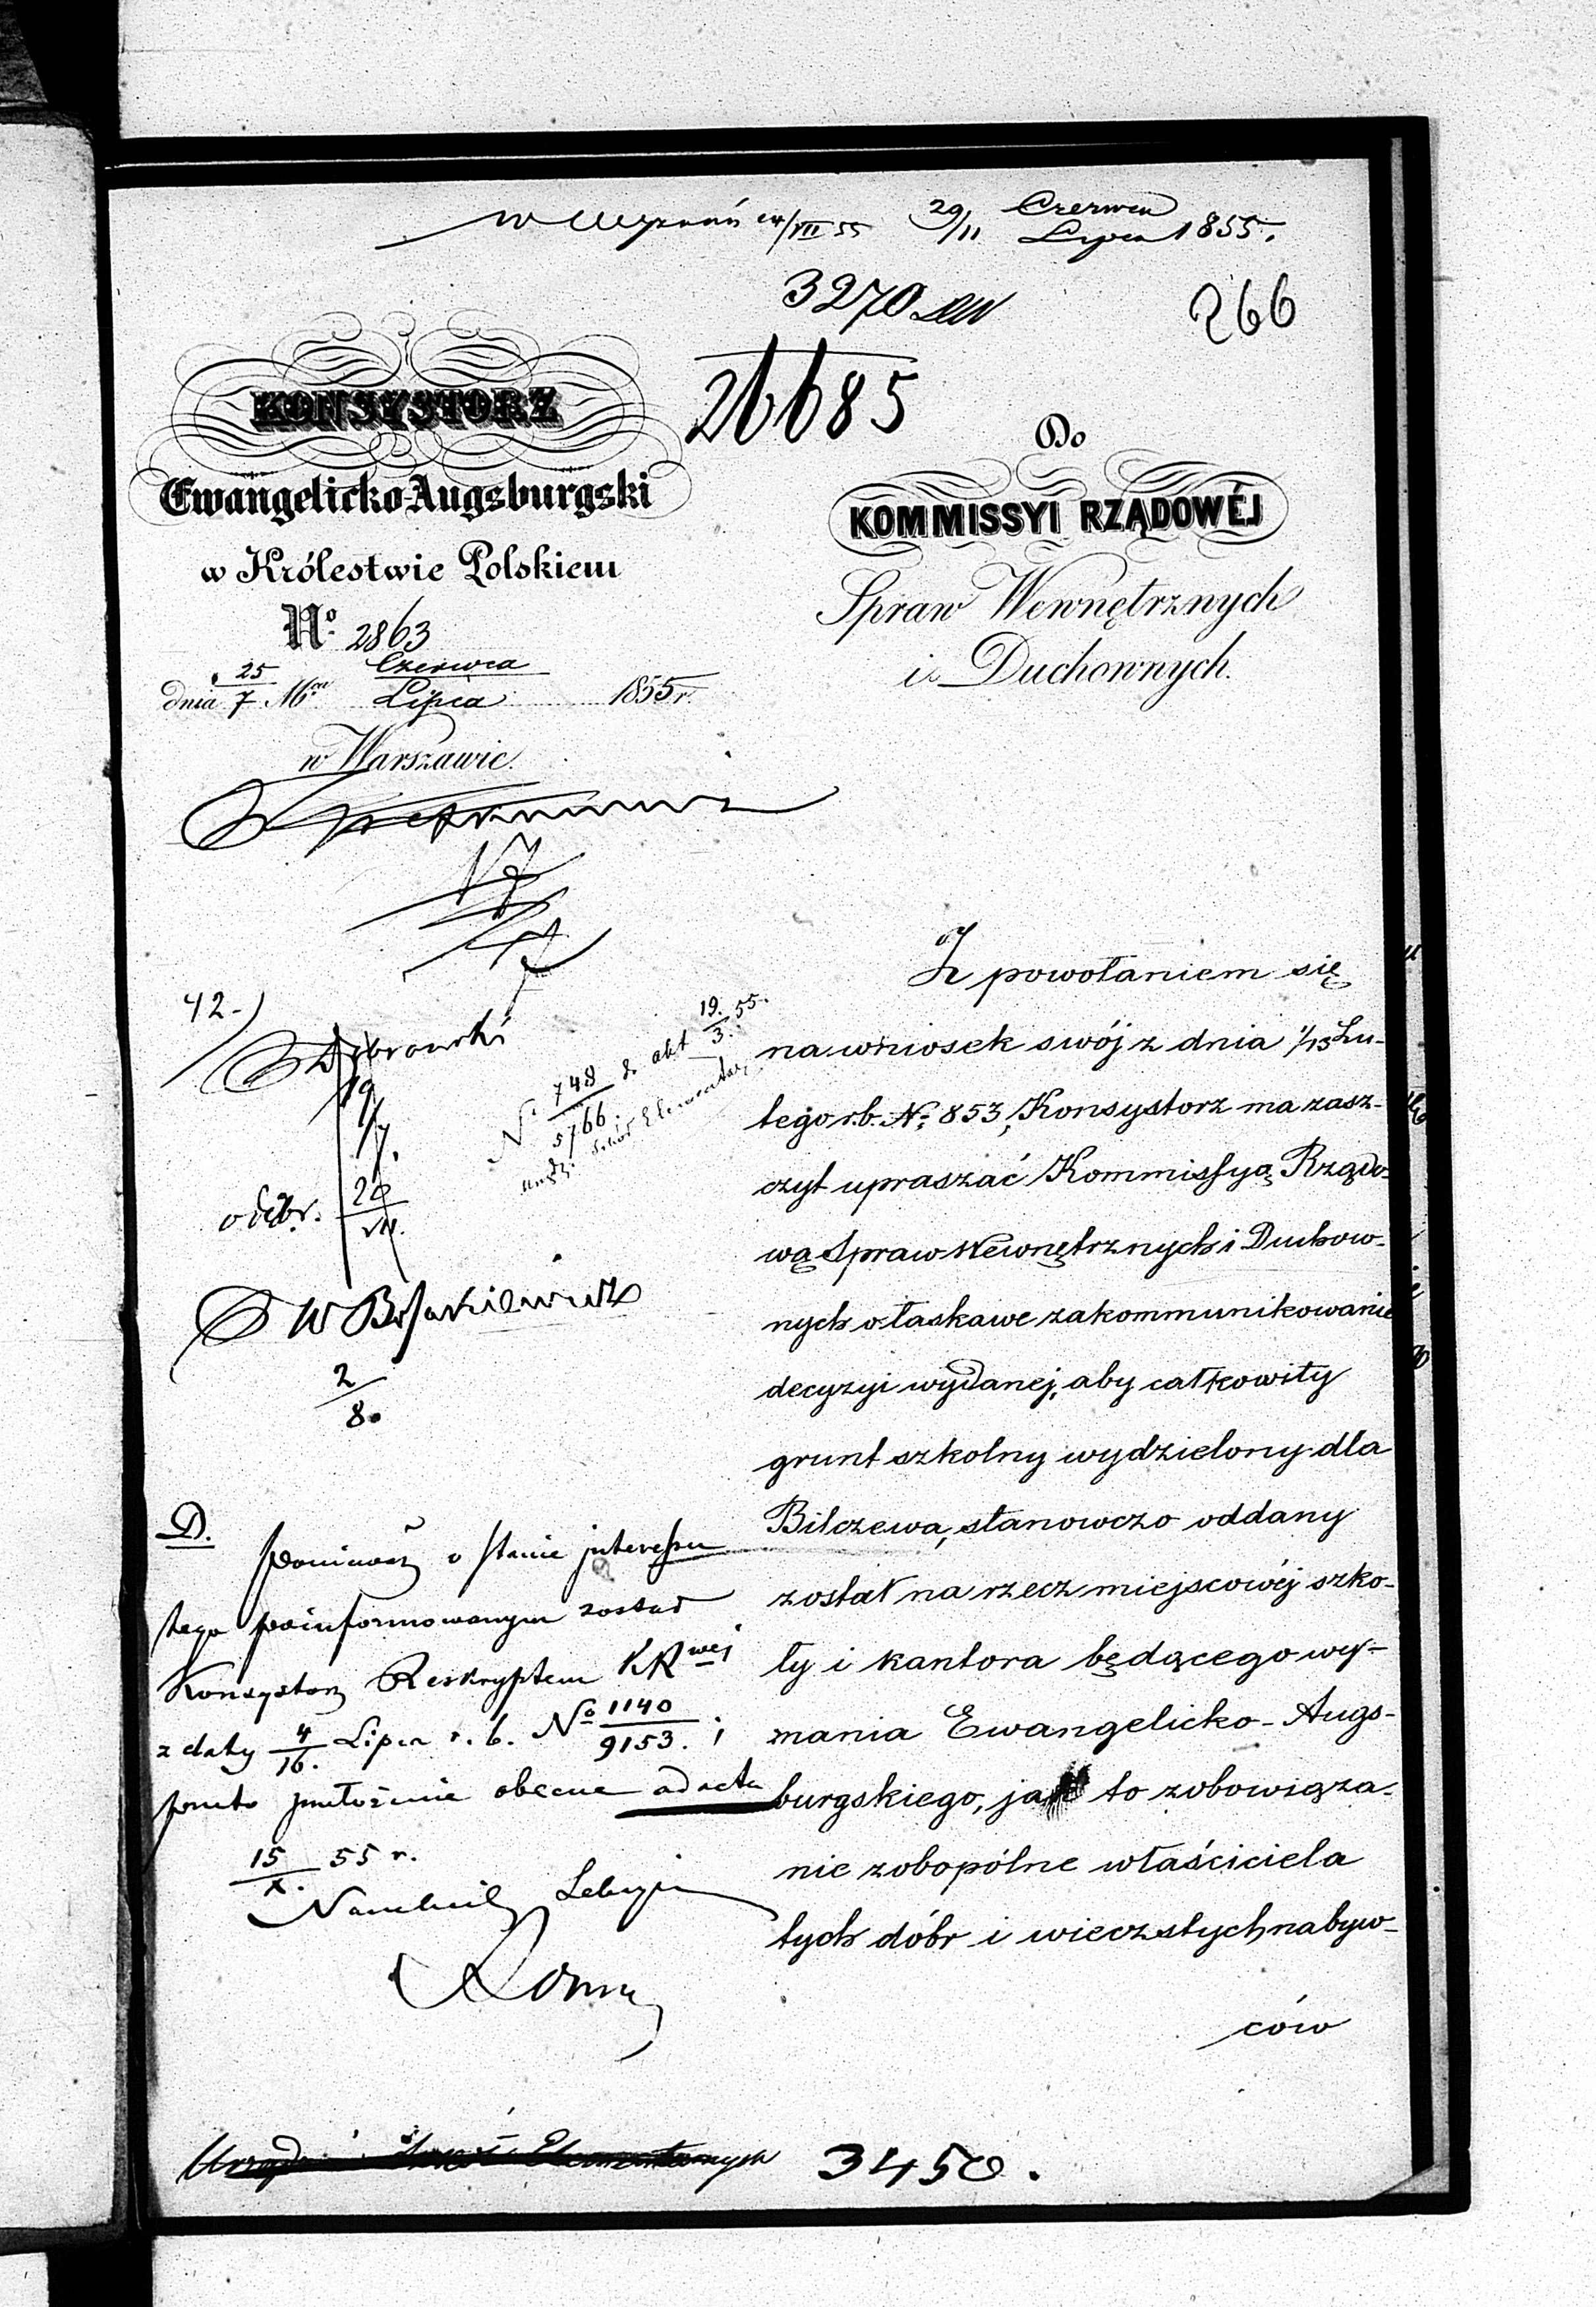 29/11 Czerwca
Lipca 1855.
3270
266
26685
KONSYSTORZ
Ewangelicko-Augsburgski
w Królestwie Polskiem
No. 2863
dnia 25/7 Czerwca
Lipca 1855 r.
w Warszawie.
Do
KOMMISSYI RZĄDOWÉJ
Spraw Wewnętrznych
i Duchownych.
17
7
42.
19/7.
odebr. 20/VII.
No 748/5766. z akt 19./3. 55.
2/8.
Z powołaniem się
na wniosek swój z dnia 1/13 Lu-
tego r.b. No 853, Konsystorz ma zasz-
czyt upraszać Kommissyą Rządo-
wą Spraw Wewnętrznych i Duchow-
nych o łaskawe zakommunikowanie
decyzyi wydanej, aby całkowity
grunt szkolny wydzielony dla
Bilczewa, stanowczo oddany
został na rzecz miejscowéj szko-
ły i kantora będącego wy-
mania Ewangelicko-Augs-
burgskiego, jak to zobowiąza-
nie zobopólne właściciela
tych dóbr i wieczstych nabyw-
ców
D.
Ponieważ o stanie interessu
tego poinformowanym został
Konsystorz Reskryptem KRwej
z daty 4/16. Lipca r. b. No 1140/9153. i
przeto przełożenie obecne ad acta
15/X. 55 r.
Naczelnik
3450.